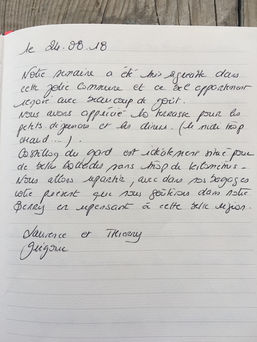 le 24.08.18
Notre semaine a été très agréable dans
cette jolie commune et ce bel appartement
rénové avec beaucoup de goût.
Nous avons apprécié la terrasse pour les
petits déjeuners et les diners. (le midi trop
chaud...).
Castillon du gard est idéalement situé pour
de belles ballades sans trop de kilomètres.
Nous allons repartir, avec dans nos bagages
votre présent que nous goûterons dans notre
Berry en repensant à cette belle région.
Laurence et Thierry